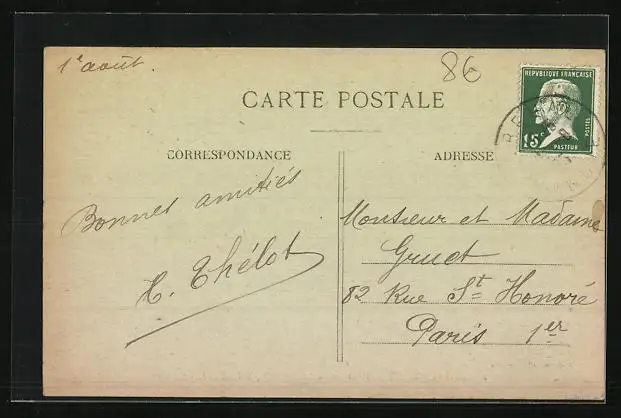 1e août.
86
CARTE POSTALE
REPUBLIQUE FRANÇAISE
15c
POSTES
PASTEUR
CORRESPONDANCE
Bonnes amitiés
H. Thélot
ADRESSE
Monsieur et Madame
Gruet
82 Rue St Honoré
Paris 1er